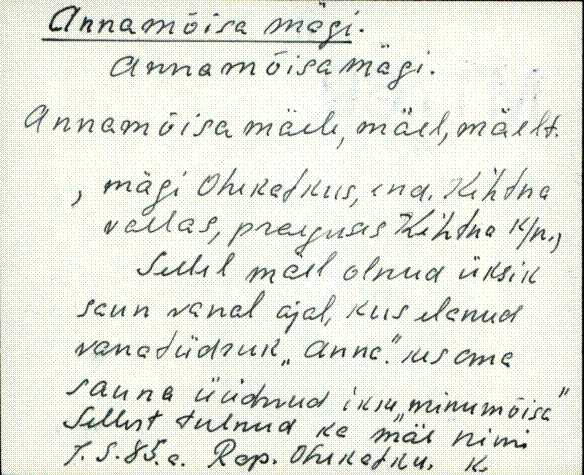 Annamõisa mägi.
Annamõisamägi.
Annamõisa mäele, mäel, mäelt.
, mägi Ohekatkus, end. Kehtna
vallas, praeguses Kehtna k/n.,
Sellel mäel olnud üksik
saun vanal ajal, kus elanud
vanatüdruk „Anna". kes oma
sauna üüdnud ikka „minumõisa"
Sellest tulnud ka mäe nimi
7.5.85.a. Rap. Ohekatku. k.